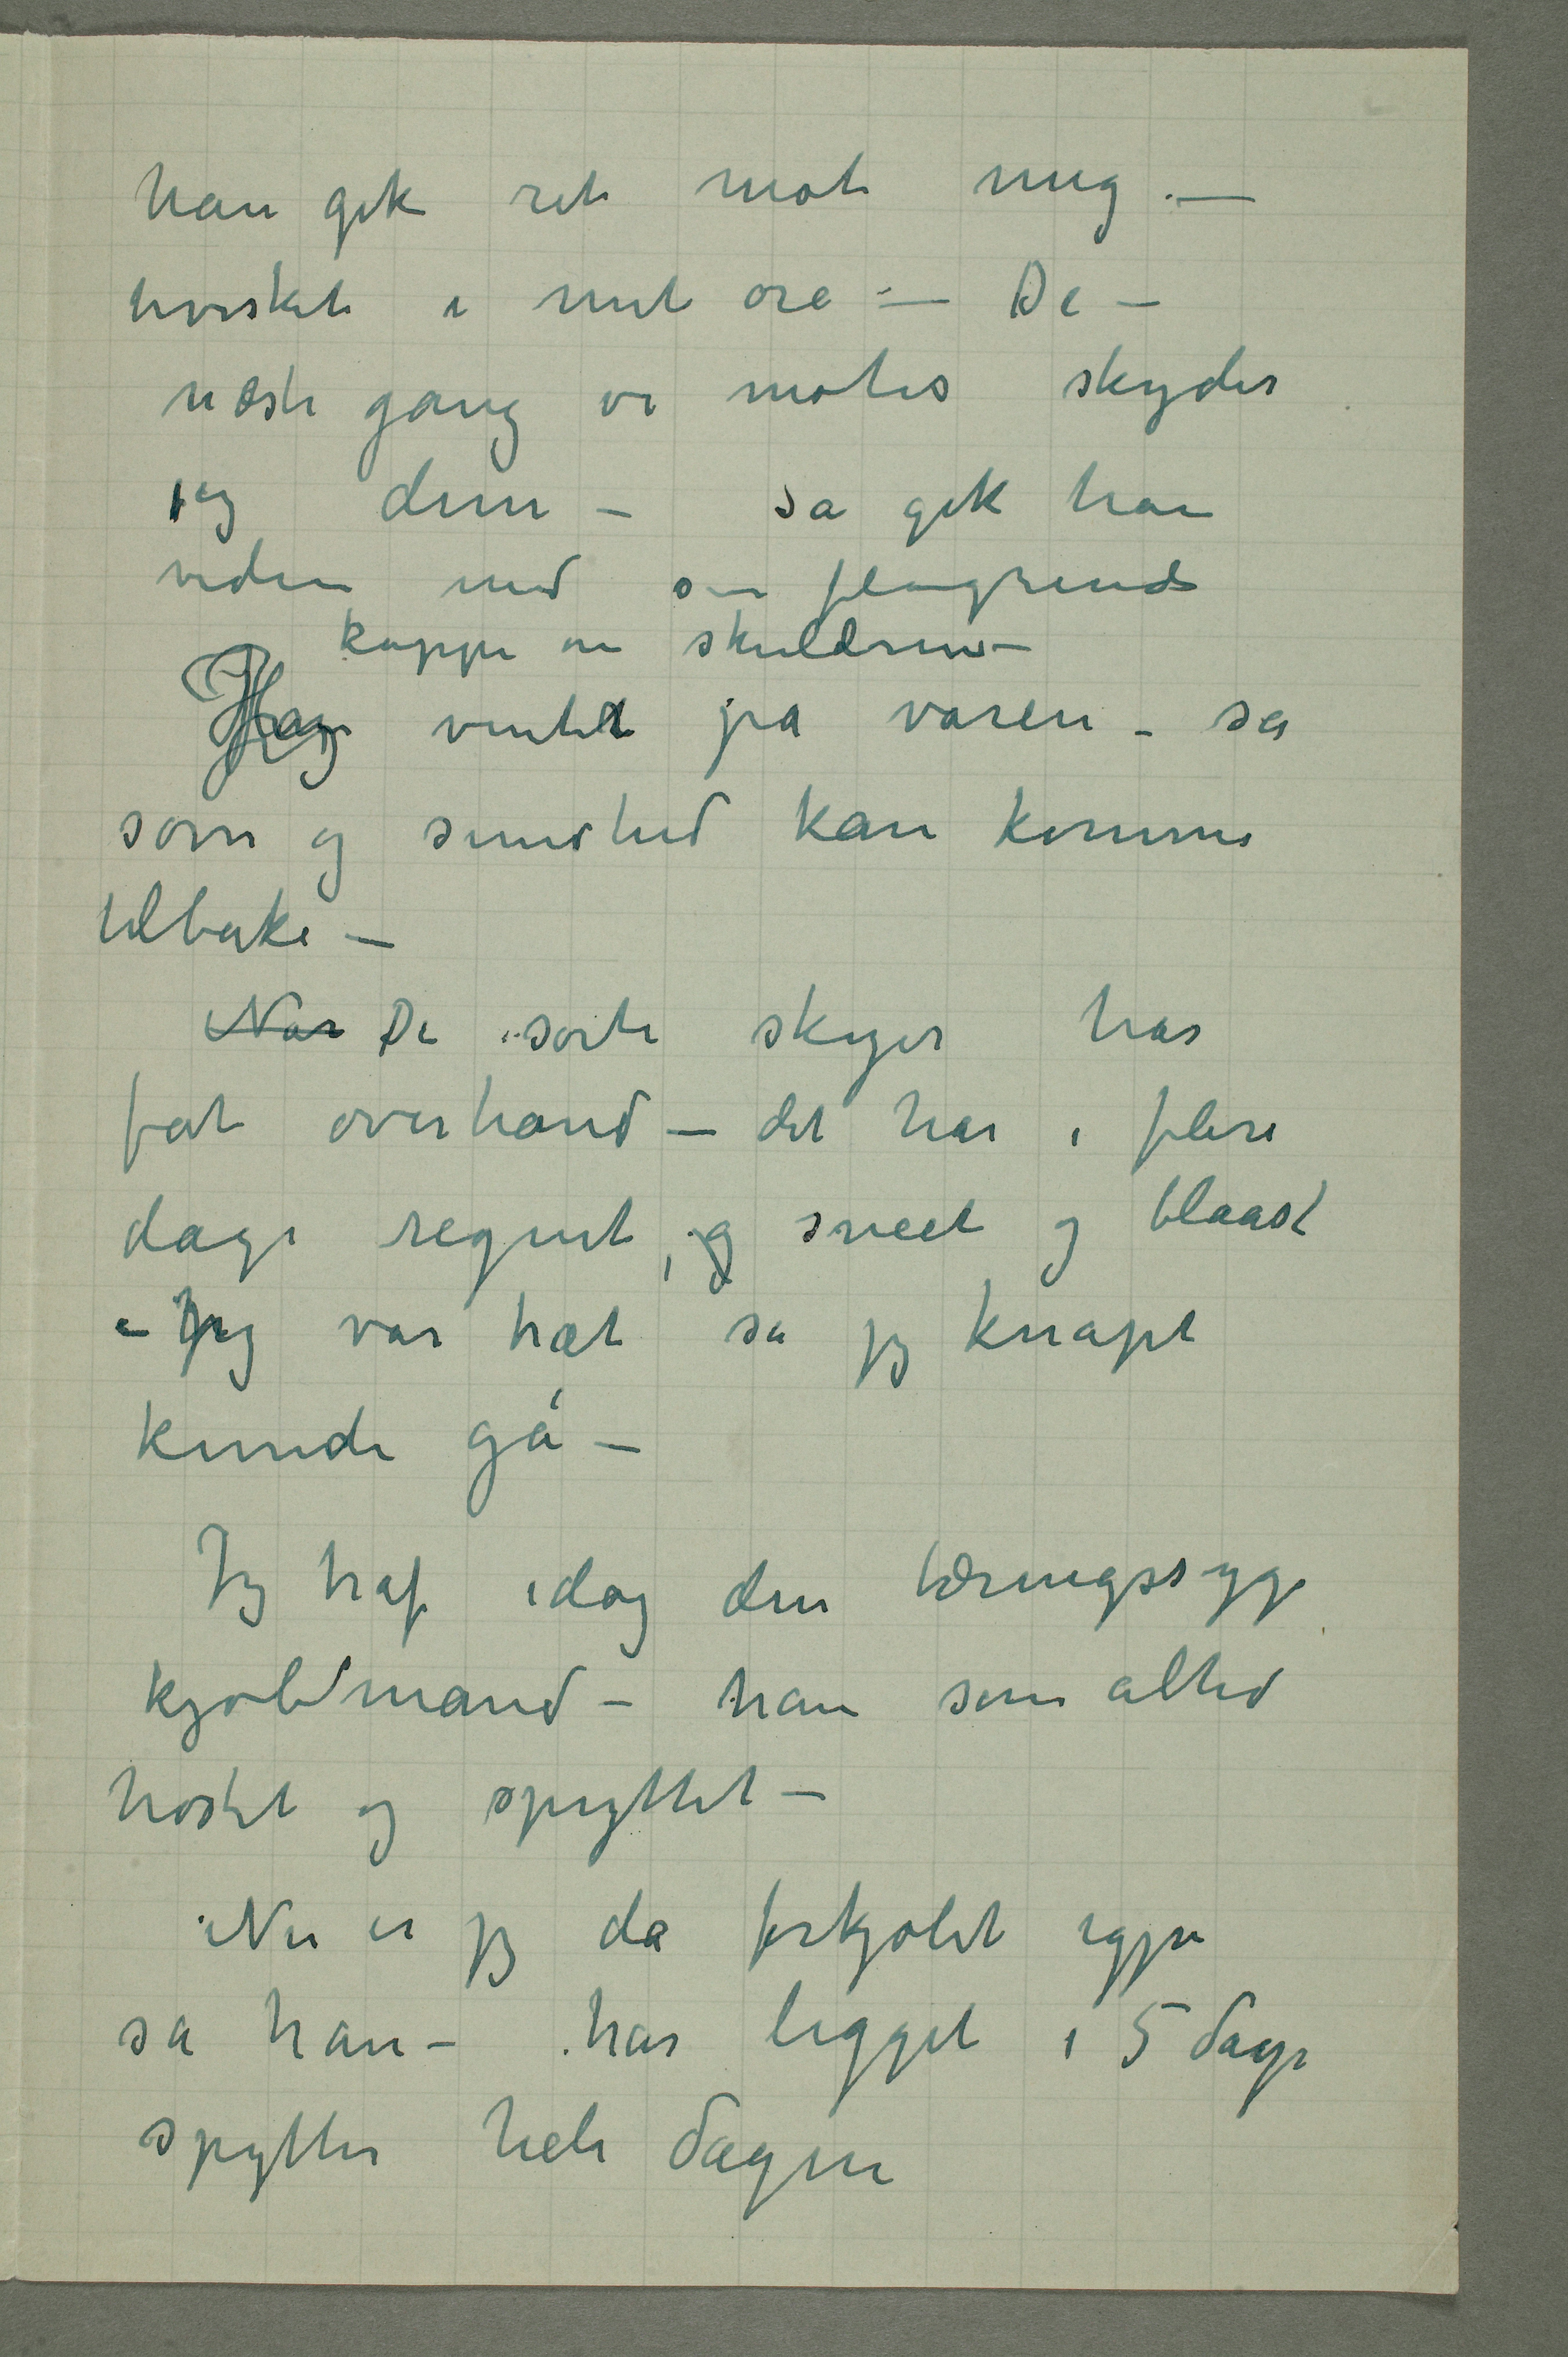 han gik ret mot mig. —
hvisket i mit øre — De —
næste gang vi møtes skyder
jeg dem – så gik han
videre med sin flagrende
kappe om skuldrene –
Jeg venter på våren – så
søvn og sundhed kan komme
tilbake —
Når De sorte skyer har
fåt overhånd – det har i flere
dage regnet, og sneet og blaast
– Jeg var træt så jeg knapt
kunde gå –
Jeg traf idag den tæringssyge
kjøbmand – han som altid
hostet og spyttet –
Nu er jeg da forkjølet igjen
sa han – har ligget i 5 dage
spytter hele dagen